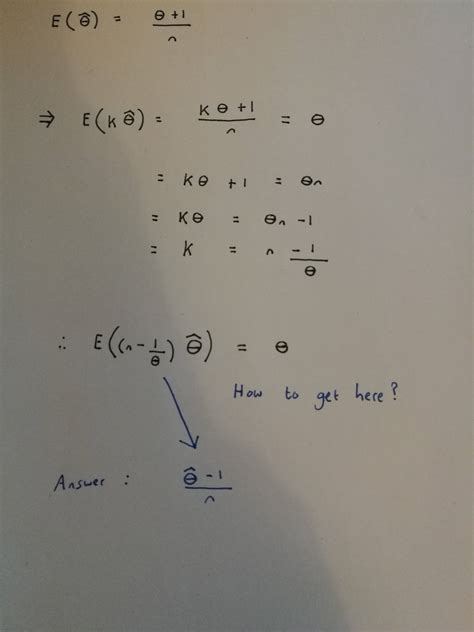 E(θ̂) = θ+1/n
⇒ E(kθ̂) = kθ+1/n = θ
= kθ +1 = θn
= kθ = θn -1
= k = n -1/θ
∴ E((n-1/θ) θ̂) = θ
How to get here?
Answer : θ̂-1/n